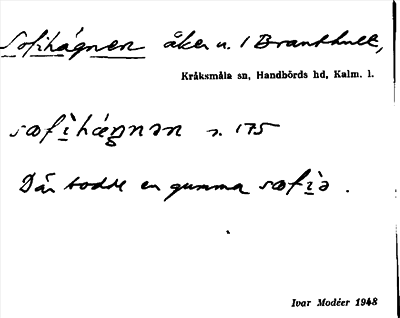 Sofihágnen åker u. 1 Branthult,
Kråksmåla sn, Handbörds hd, Kalm. l.
sofìhágnən s. 175
Där bodde en gumma sofìə.
Ivar Modéer 1948